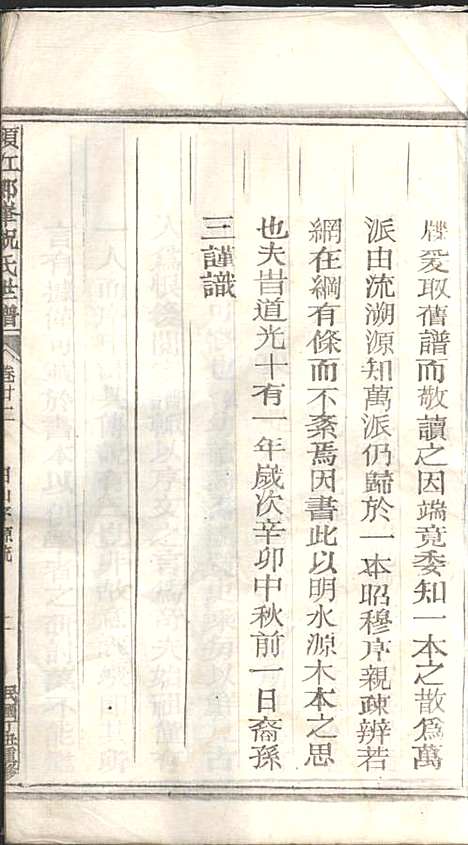 牒爰取舊譜而敬讀之因端竟委知一本之散爲萬
派由流溯源知萬派仍歸於一本昭穆序親疎辨若
網在綱有條而不紊焉因書此以明水源木本之思
也夫旹道光十有一年歲次辛卯中秋前一日裔孫
三謹識
須江郎峯祝氏世譜
卷廿二
源流
二
民國丁亥重修